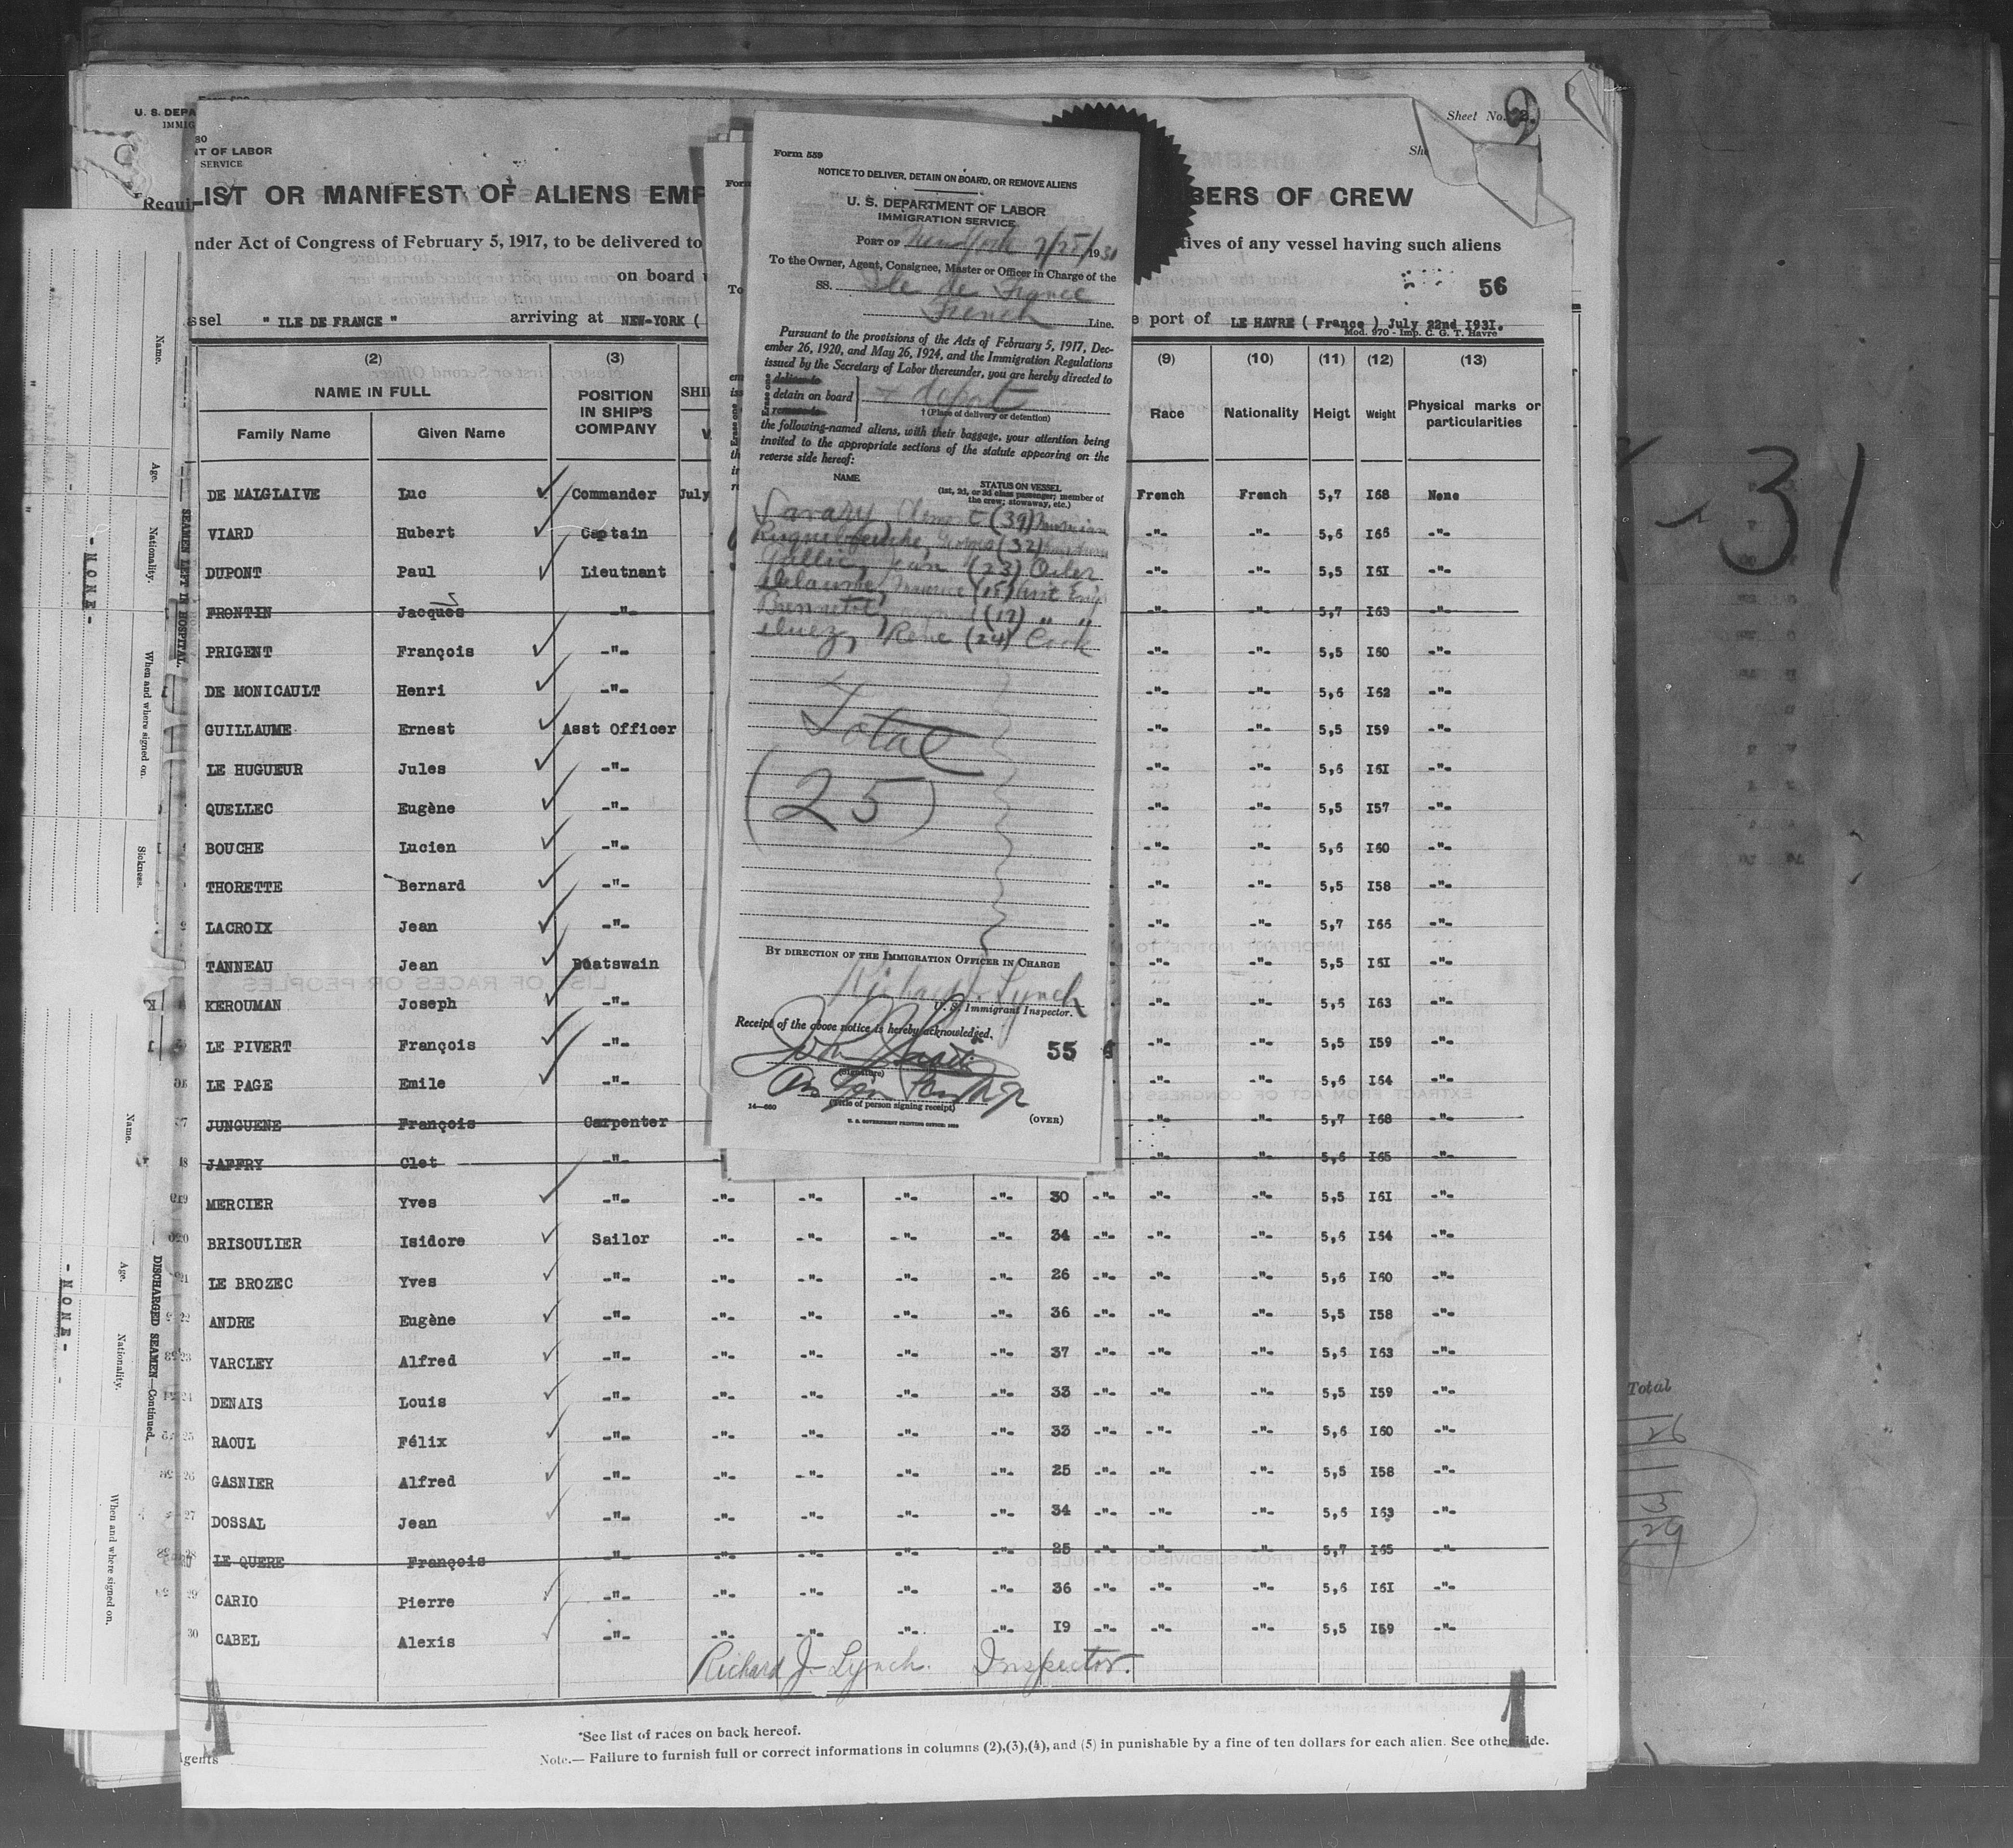 U. S. DEPA
IMMIG
80
NT OF LABOR
SERVICE
Sheet No. 2.
She
LIST OR MANIFEST OF ALIENS EMP
BERS OF CREW
Requi
nder Act of Congress of February 5, 1917, to be delivered to
tives of any vessel having such aliens
on board
56
ssel " ILE DE FRANCE " arriving at NEW-YORK (
e port of LE HAVRE ( France ) July 22nd I93I.
Mod. 970 - Imp. C. G. T. Havre
(2) (3) (9) (10) (11) (12) (13)
NAME IN FULL
Family Name Given Name
POSITION
IN SHIP'S
COMPANY
SHI
Race Nationality Heigt Weight Physical marks or
particularities
DE MALGLAIVE Luc Commander July French French 5,7 I68 None
VIARD Hubert Captain -"- -"- 5,6 I66 -"-
DUPONT Paul Lieutnant -"- -"- 5,5 I6I -"-
FRONTIN Jacques -"- -"- -"- 5,7 I63 -"-
PRIGENT François -"- -"- -"- 5,5 I60 -"-
DE MONICAULT Henri -"- -"- -"- 5,6 I62 -"-
GUILLAUME Ernest Asst Officer -"- -"- 5,5 I59 -"-
LE HUGUEUR Jules -"- -"- -"- 5,6 I6I -"-
QUELLEC Eugène -"- -"- -"- 5,5 I57 -"-
BOUCHE Lucien -"- -"- -"- 5,6 I60 -"-
THORETTE Bernard -"- -"- -"- 5,5 I58 -"-
LACROIX Jean -"- -"- -"- 5,7 I66 -"-
TANNEAU Jean Boatswain -"- -"- 5,5 I6I -"-
KEROUMAN Joseph -"- -"- -"- 5,6 I63 -"-
LE PIVERT François -"- -"- -"- 5,5 I59 -"-
LE PAGE Emile -"- -"- -"- 5,6 I64 -"-
JUNGUENE François Carpenter -"- -"- 5,7 I68 -"-
JAFFRY Clet -"- -"- -"- 5,6 I65 -"-
MERCIER Yves -"- -"- -"- -"- -"- 30 -"- -"- -"- 5,5 I6I -"-
BRISOULIER Isidore Sailor -"- -"- -"- -"- 34 -"- -"- -"- 5,6 I64 -"-
21 LE BROZEC Yves -"- -"- -"- -"- -"- 26 -"- -"- -"- 5,6 I60 -"-
22 ANDRE Eugène -"- -"- -"- -"- -"- 36 -"- -"- -"- 5,5 I58 -"-
23 VARCLEY Alfred -"- -"- -"- -"- -"- 37 -"- -"- -"- 5,6 I63 -"-
24 DENAIS Louis -"- -"- -"- -"- -"- 33 -"- -"- -"- 5,5 I59 -"-
25 RAOUL Félix -"- -"- -"- -"- -"- 33 -"- -"- -"- 5,6 I60 -"-
26 GASNIER Alfred -"- -"- -"- -"- -"- 25 -"- -"- -"- 5,5 I58 -"-
27 DOSSAL Jean -"- -"- -"- -"- -"- 34 -"- -"- -"- 5,6 I63 -"-
28 LE QUERE François -"- -"- -"- -"- -"- 25 -"- -"- -"- 5,7 I65 -"-
29 CARIO Pierre -"- -"- -"- -"- -"- 36 -"- -"- -"- 5,6 I6I -"-
30 CABEL Alexis -"- -"- -"- -"- -"- I9 -"- -"- -"- 5,5 I59 -"-
Richard J. Lynch. Inspector.
*See list of races on back hereof.
Note.— Failure to furnish full or correct informations in columns (2),(3),(4), and (5) in punishable by a fine of ten dollars for each alien. See other side.
Agents
Form 559
NOTICE TO DELIVER, DETAIN ON BOARD, OR REMOVE ALIENS
U. S. DEPARTMENT OF LABOR
IMMIGRATION SERVICE
PORT OF New York 1931
To the Owner, Agent, Consignee, Master or Officer in Charge of the
SS. Ile de France
French Line.
Pursuant to the provisions of the Acts of February 5, 1917, Dec-
ember 26, 1920, and May 26, 1924, and the Immigration Regulations
issued by the Secretary of Labor thereunder, you are hereby directed to
Erase one
deliver to
detain on board
remove to
+ deport
† (Place of delivery or detention)
the following-named aliens, with their baggage, your attention being
invited to the appropriate sections of the statute appearing on the
reverse side hereof:
NAME STATUS ON VESSEL
(1st, 2d, or 3d class passenger; member of
the crew; stowaway, etc.)
Savary, (39)
(32)
Gallic, Jean (23) Oiler
Delaume, Maurice (15)
(17) " "
René (24) Cook
Total
(25)
BY DIRECTION OF THE IMMIGRATION OFFICER IN CHARGE
Richard J. Lynch
U. S. Immigrant Inspector.
Receipt of the above notice is hereby acknowledged.
55
(Signature)
(Title of person signing receipt)
14—660
(OVER)
U. S. GOVERNMENT PRINTING OFFICE
Form
To
Name.
Age.
Nationality.
When and where signed on.
Sickness.
SEAMEN LEFT IN HOSPITAL
- N O N E -
Name.
Age.
Nationality.
When and where signed on.
DISCHARGED SEAMEN—Continued.
- N O N E -
31
Total